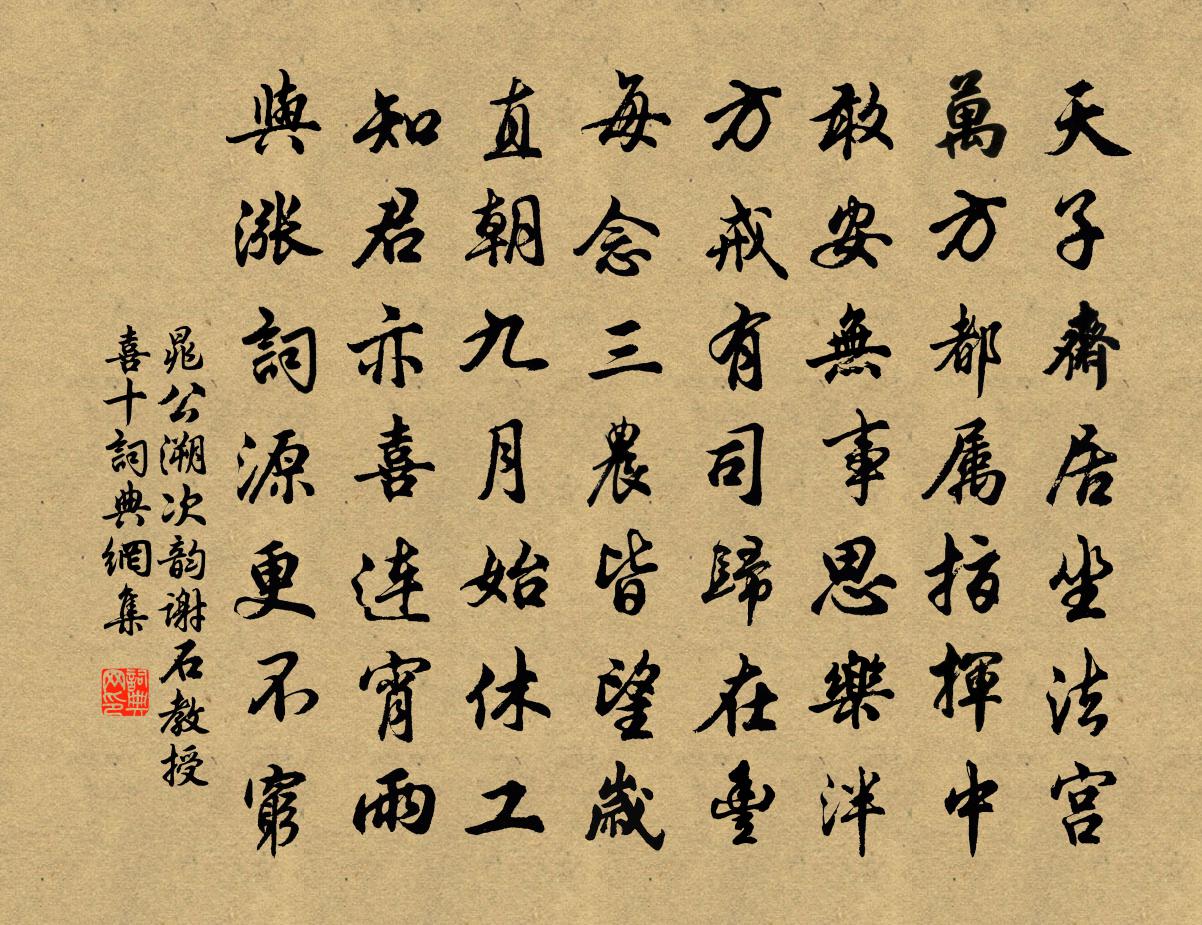 天子齋居坐法宮
萬方都属指揮中
敢安無事思樂泮
方戒有司歸在豐
每念三農皆望歲
直朝九月始休工
知君亦喜連宵雨
與漲詞源更不窮
晁公溯次韵謝石教授
喜十詞典網集
詞典
网印